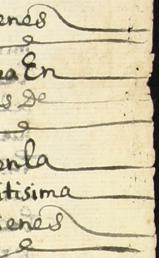 enes
ua En
s de
enla
itisima
ienes